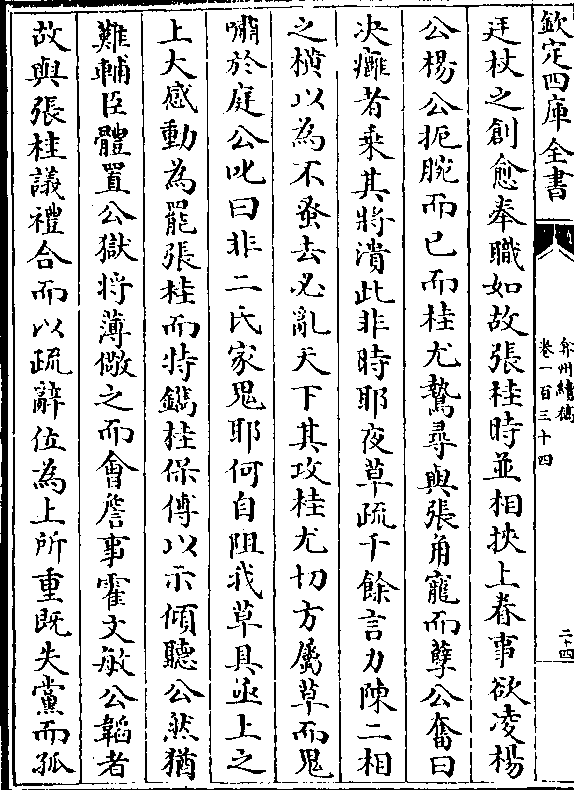 欽定四庫全書
弇州續稿
卷一百三十四
二十四
廷杖之創愈奉職如故張桂時並相挾上眷事欲凌楊
公楊公扼腕而已而桂尤驁尋與張角寵而孽公奮曰
决癰者乘其將潰此非時耶夜草疏千餘言力陳二相
之横以為不蚤去必亂天下其攻桂尤切方屬草而鬼
嘯於庭公叱曰非二氏家鬼耶何自阻我草具亟上之
上大感動為罷張桂而特鐫桂保傅以示傾聽公然猶
難輔臣體置公獄將薄儆之而會詹事霍文敏公韜者
故與張桂議禮合而以疏辭位為上所重既失黨而孤